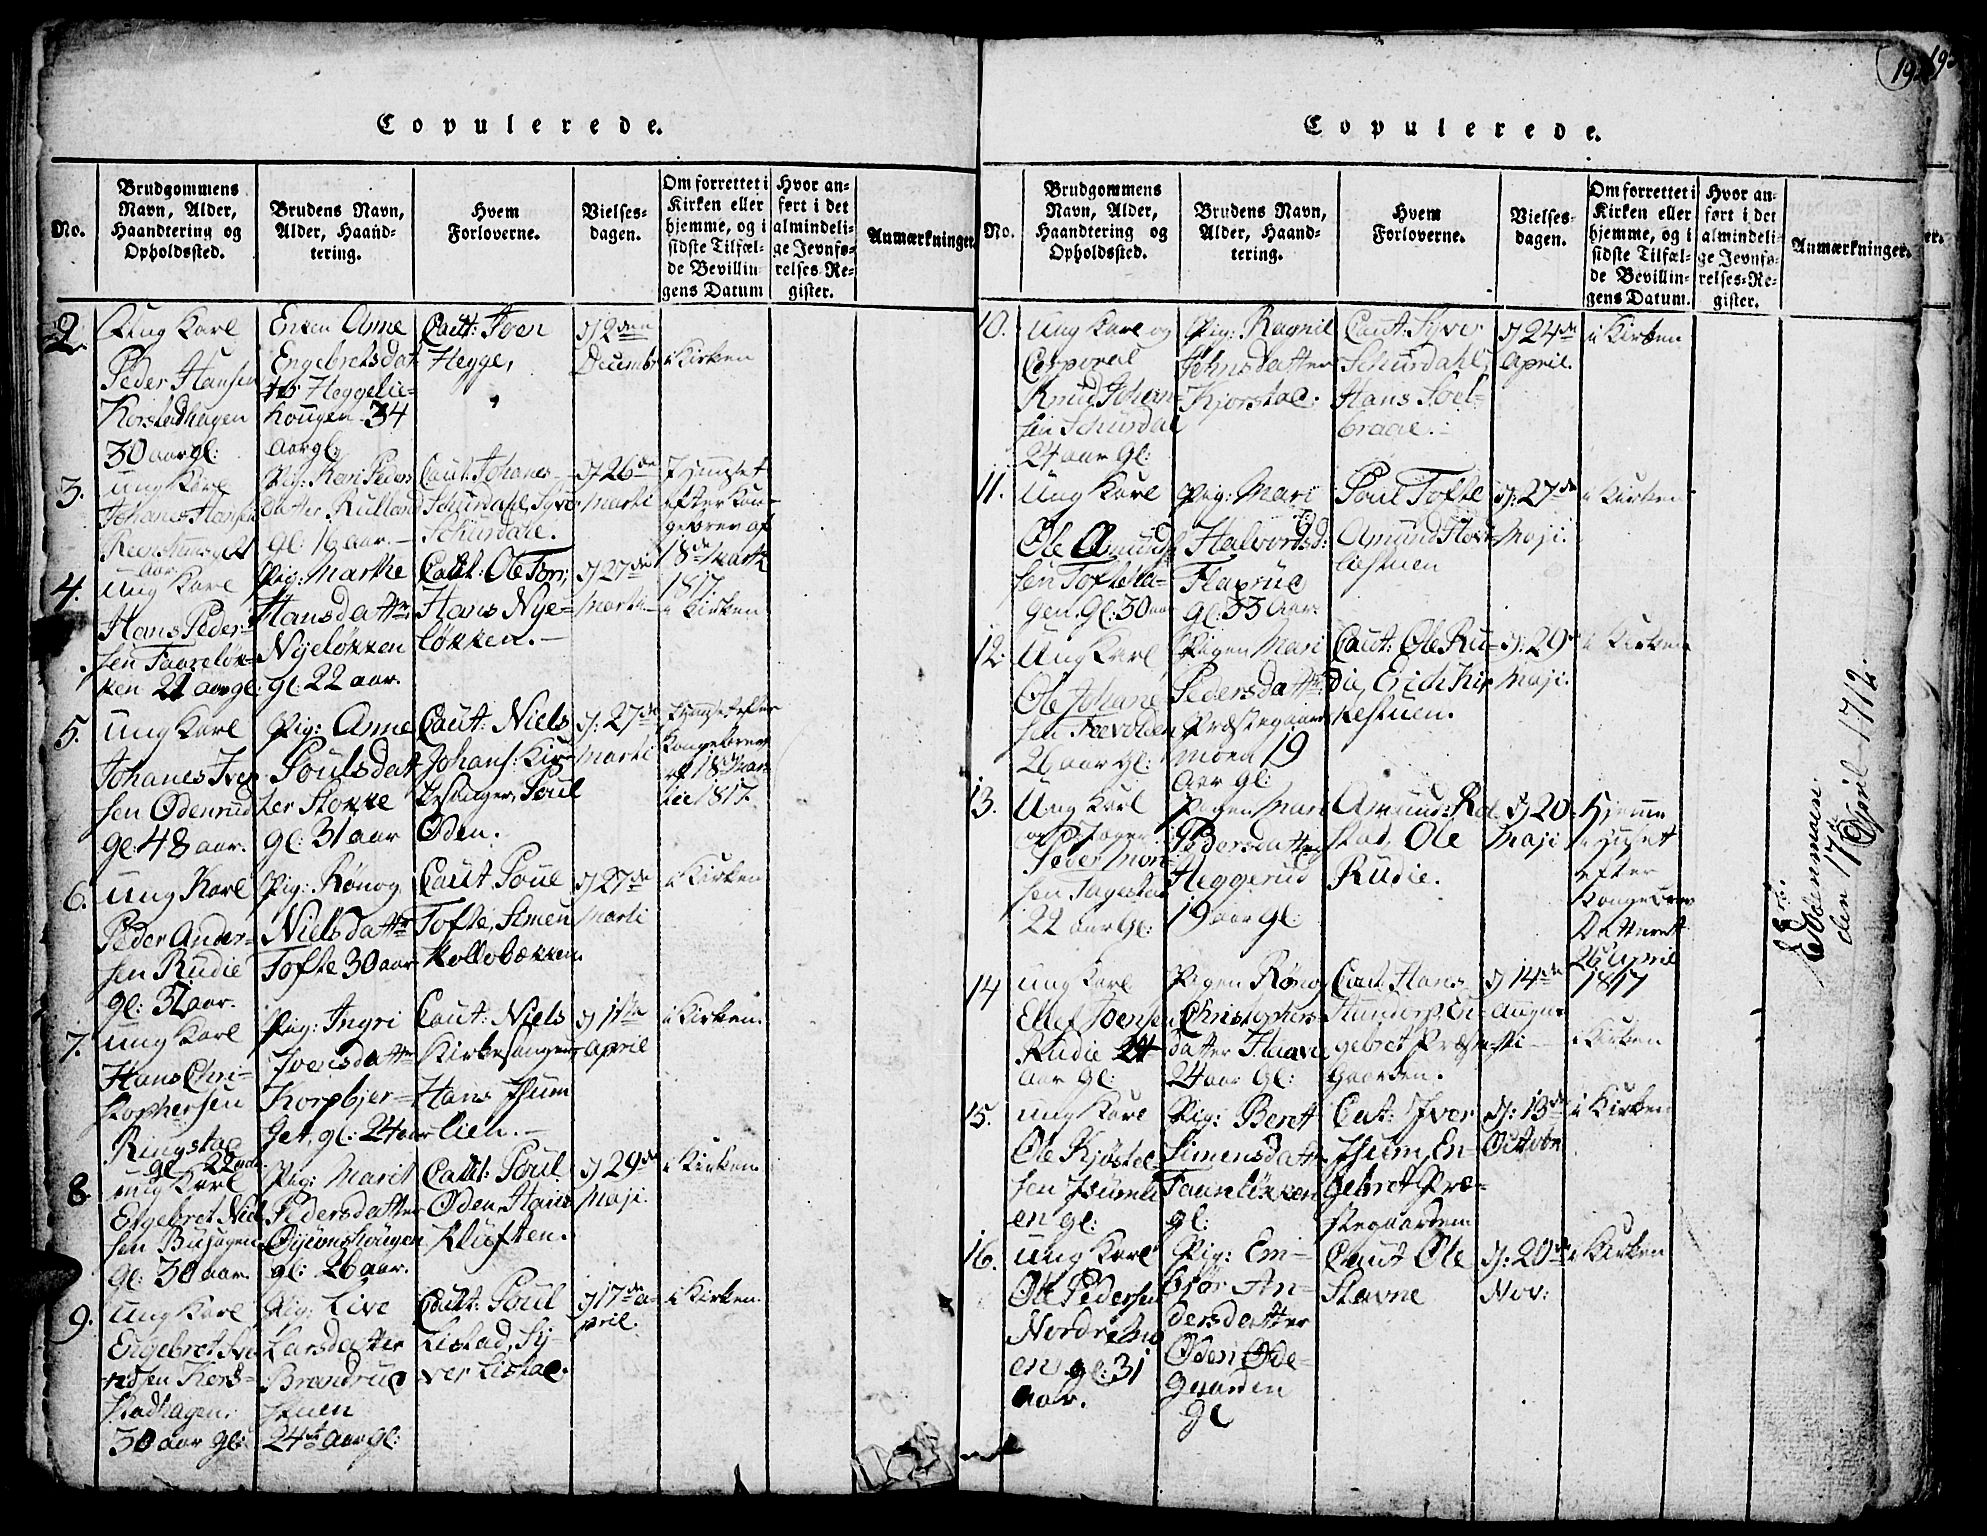 Copulerede.
No.
Brudgommens
Navn, Alder,
Haandtering og
Opholdssted.
Brudens Navn,
Alder, Haand-
tering.
Hvem
Forloverne.
Vielses-
dagen.
Om forrettet i
Kirken eller
hjemme, og i
sidste Tilfæl-
de Bevillin-
gens Datum
Hvor an-
ført i det
almindeli-
ge Jevnfø-
relses-Re-
gister.
Anmærkninger.
2.
Ung Karl
Peder Hansen
Korstadhagen
30 aar gl:
Enken Anne
Engebretsdat
ter Heggelie-
hougen 34
aar gl:
Caut: Joen
Hegge,
d 2den
Decembr
i Kirken
3.
Ung Karl
Johanes Hansen
aar
Pig: Kari Peders
datter Rulland
gl: 19 aar.
Caut: Johanes
Schurdahl, Syver
Schurdahl.
d 26de
Marti
Hjemmet
efter Kon-
gebrev af
18de Martz
1817.
4.
Ung Karl
Hans Peder-
sen Faareløk-
ken 22 aar gl:
Pig: Marthe
Hansdatter
Nyeløkken
gl: 22 aar.
Caut: Ole Fori,
Hans Nye-
løkken.
d 27de
Marti
i Kirken
5.
Ung Karl
Johanes Iver
sen Ødenrud
gl: 48 aar.
Pig: Anne
Poulsdat
ter Stokke
gl: 31 aar
Caut: Niels
Johans: Kir-
kesanger, Poul
Øden.
d: 27de
Marti
Hjemmet efter
Kongebrev
af 18de Mar-
tii 1817.
6.
Ung Karl
Peder Ander-
sen Rudie
gl: 32 aar.
Pig: Rønog
Nielsdatter
Tofte 30 aar
Caut Poul
Tofte, Simen
Kollobækken.
d 27de
Marti
i Kirken
7.
Ung Karl
Hans Chri-
stophersen
Ringstad
gl 22 aar
Pig: Ingri
Iversdatter
Korpbjer-
get, gl: 24 aar
Caut: Niels
Kirkesanger,
Hans Isum
lien.
d 11te
April
i Kirken.
8.
Ung Karl
Engebret Niel
sen
gl: 30 aar.
Pig: Marit
Pedersdatter
Øyjonshougen
gl: 26 aar.
Caut: Poul
Øden, Hans
Kluften.
d 29de
Maji
i Kirken
9.
Ung Karl
Engebret Ive
rdsen Kors-
stadhagen.
30 aar gl:
Pig: Live
Larsdatter
Brandrud
stuen
24 aar gl:
Caut: Poul
Listad, Sy-
ver Listad.
d 17de A-
pril.
i Kirken.
Copulerede.
192
No.
Brudgommens
Navn, Alder,
Haandtering og
Opholdssted.
Brudens Navn,
Alder, Haand-
tering.
Hvem
Forloverne.
Vielses-
dagen.
Om forrettet i
Kirken eller
hjemme, og i
sidste Tilfæl-
de Bevillin-
gens Datum.
Hvor an-
ført i det
almindeli-
ge Jevnfø-
relses-Re-
gister.
Anmærkninger.
10.
Ung Karl og
Corporal
Knud Johan-
sen Schurdal
24 aar gl:
Pig: Ragnil
Johnsdatter
Kjorstad.
Caut: Syver
Schurdahl,
Hans Soel-
braae.
d 24de
April.
i Kirken
11.
Ung Karl
Ole Amund-
sen Tofteha-
gen gl: 30 aar
Pig: Mari
Halvorsd:
Flaarud
gl: 33 Aar.
Poul Tofte
Amund
d: 27de
Maji.
i Kirken
12.
Ung Karl
Ole Johane
sen
26 aar gl:
Pigen Mari
Pedersdatter
Præstegaar
moen 19
Aar gl:
Caut: Ole Ru-
die, Erich Kir
kestuen.
d: 29
Maji.
i Kirken
13.
Ung Karl
og Jæger
Peder Mon-
sen
22 aar gl:
Pigen Mari
Pedersdatter
Heggerud
19 aar gl:
Amund
stad, Ole
Rudie.
d 20
Maji
Hjemme
efter
Kongebrev
Datteret
26 April
1817
14
Ung Karl
Ellef Joensen
Rudie 24
aar gl:
Pigen Rønog
Christophers-
datter Haave
24 aar gl:
Caut Hans
Hundorp, En-
gebret Præste-
gaarden.
d 14de
Augu-
sti
i Kirken
15.
Ung Karl
Ole Kjøstel-
sen Isumli
en gl:
Pig: Beret
Simensdatter
Faareløkken
gl:
Caut: Iver
Isum, En-
gebret Præ-
stegaarden
d: 13de
Octobr
i Kirken
16.
Ung Karl
Ole Pedersen
Nordre Mo
en gl: 31
aar.
Pig: Em-
bjør An-
dersdatter
Øden Øde-
gaarden
gl
Caut Ole
Stavne
d: 20de
Nov:
i Kirken
den 17de April 1712.